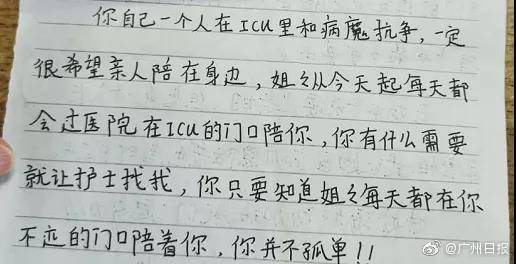 你自己一个人在ICU里和病魔抗争,一定
很希望亲人陪在身边,姐々从今天起每天都
会过医院在ICU的门口陪你,你有什么需要
就让护士找我,你只要知道姐々每天都在你
不远的门口陪着你,你并不孤单!!
@广州日报